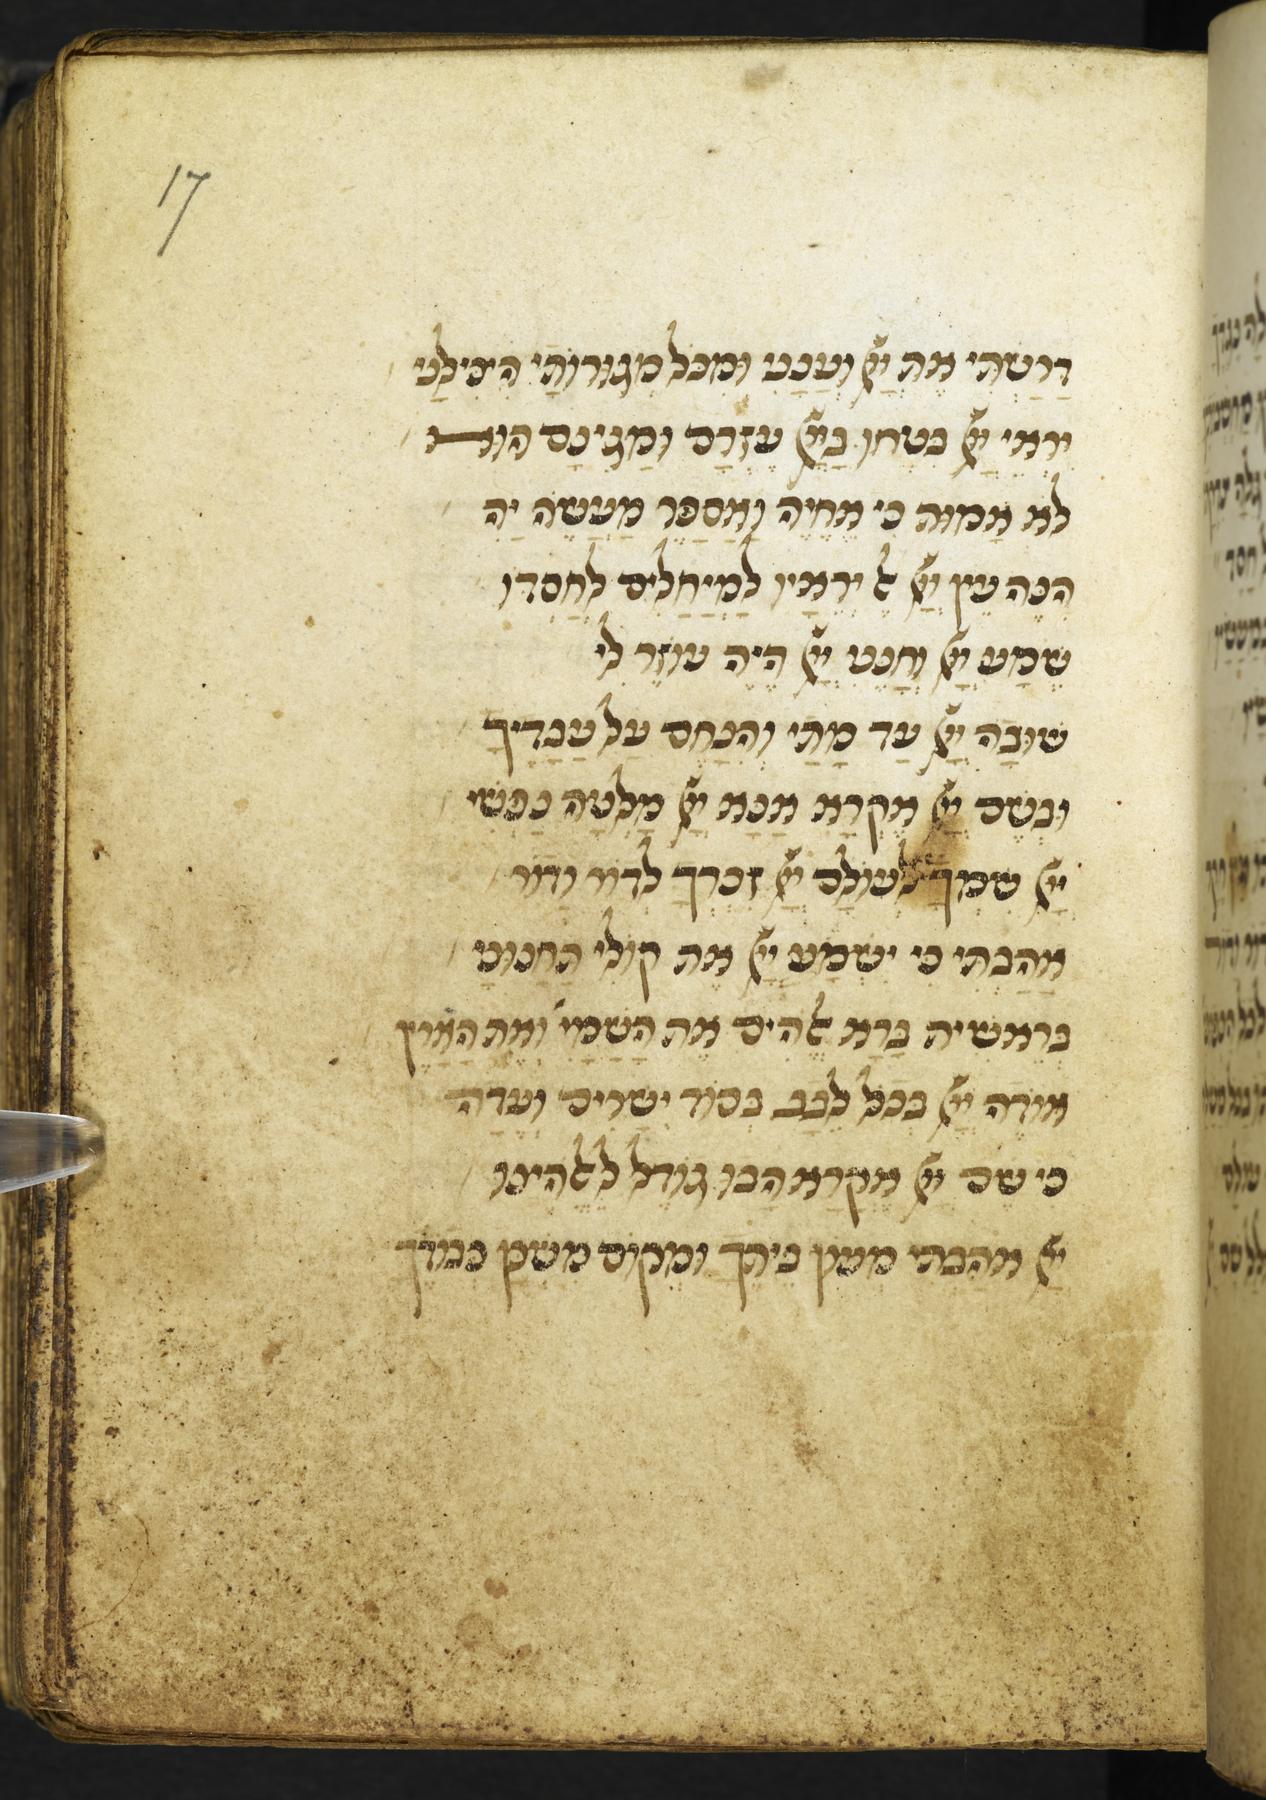 17
דָרַשְׁתִּי אֶת יְיָ וְעָנָנִי וּמִכָּל מְגוּרוֹתַי הִצִּילָנִי
יִרְאֵי יְיָ בִּטְחוּ בַיְיָ עֶזְרָם וּמָגִינָם הוּא
לֹא אָמוּת כִּי אֶחְיֶה וַאֲסַפֵּר מַעֲשֵׂה יָהּ
הִנֵּה עֵין יְיָ אל יְרֵאָיו לַמְיַחֲלִים לְחַסְדּוֹ
שְׁמַע יְיָ וְחָנֵּנִי יְיָ הֱיֵה עוֹזֵר לִי
שׁוּבָה יְיָ עַד מָתַי וְהִנָּחֵם עַל עֲבָדֶיךָ
וּבְשֵׁם יְיָ אֶקְרָא אָנָּא יְיָ מַלְּטָה נַפְשִׁי
יְיָ שִׁמְךָ לְעוֹלָם יְיָ זִכְרְךָ לְדוֹר וָדוֹר
אָהַבְתִּי כִּי יִשְׁמַע יְיָ אֶת קוֹלִי תַּחֲנוּנָי
בְּרֵאשִׁית בָּרָא אלהִים אֵת הַשָּׁמַי' וְאֵת הָאָרֶץ
אוֹדֶה יְיָ בְּכָל לֵבָב בְּסוֹד יְשָׁרִים וְעֵדָה
כִּי שֵׁם יְיָ אֶקְרָא הָבוּ גוֹדֶל לֵאלהֵינוּ
יְיָ אָהַבְתִּי מְעוֹן בֵּיתֶךָ וּמְקוֹם מִשְׁכַּן כְּבוֹדֶךָ